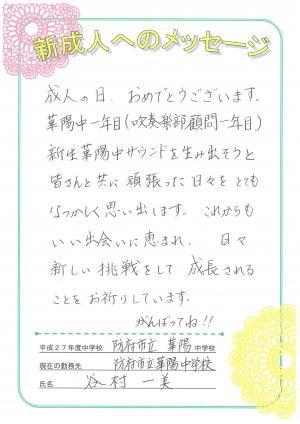 新成人へのメッセージ
成人の日、おめでとうございます。
華陽中一年目(吹奏楽部顧問一年目)
新生華陽中サウンドを生み出そうと
皆さんと共に頑張った日々をとても
なつかしく思い出します。これからも
いい出会いに恵まれ、日々
新しい挑戦をして成長される
ことをお祈りしています。
がんばってね!!
平成27年度中学校 防府市立 華陽 中学校
現在の勤務先 防府市立華陽中学校
氏名 谷村 一美